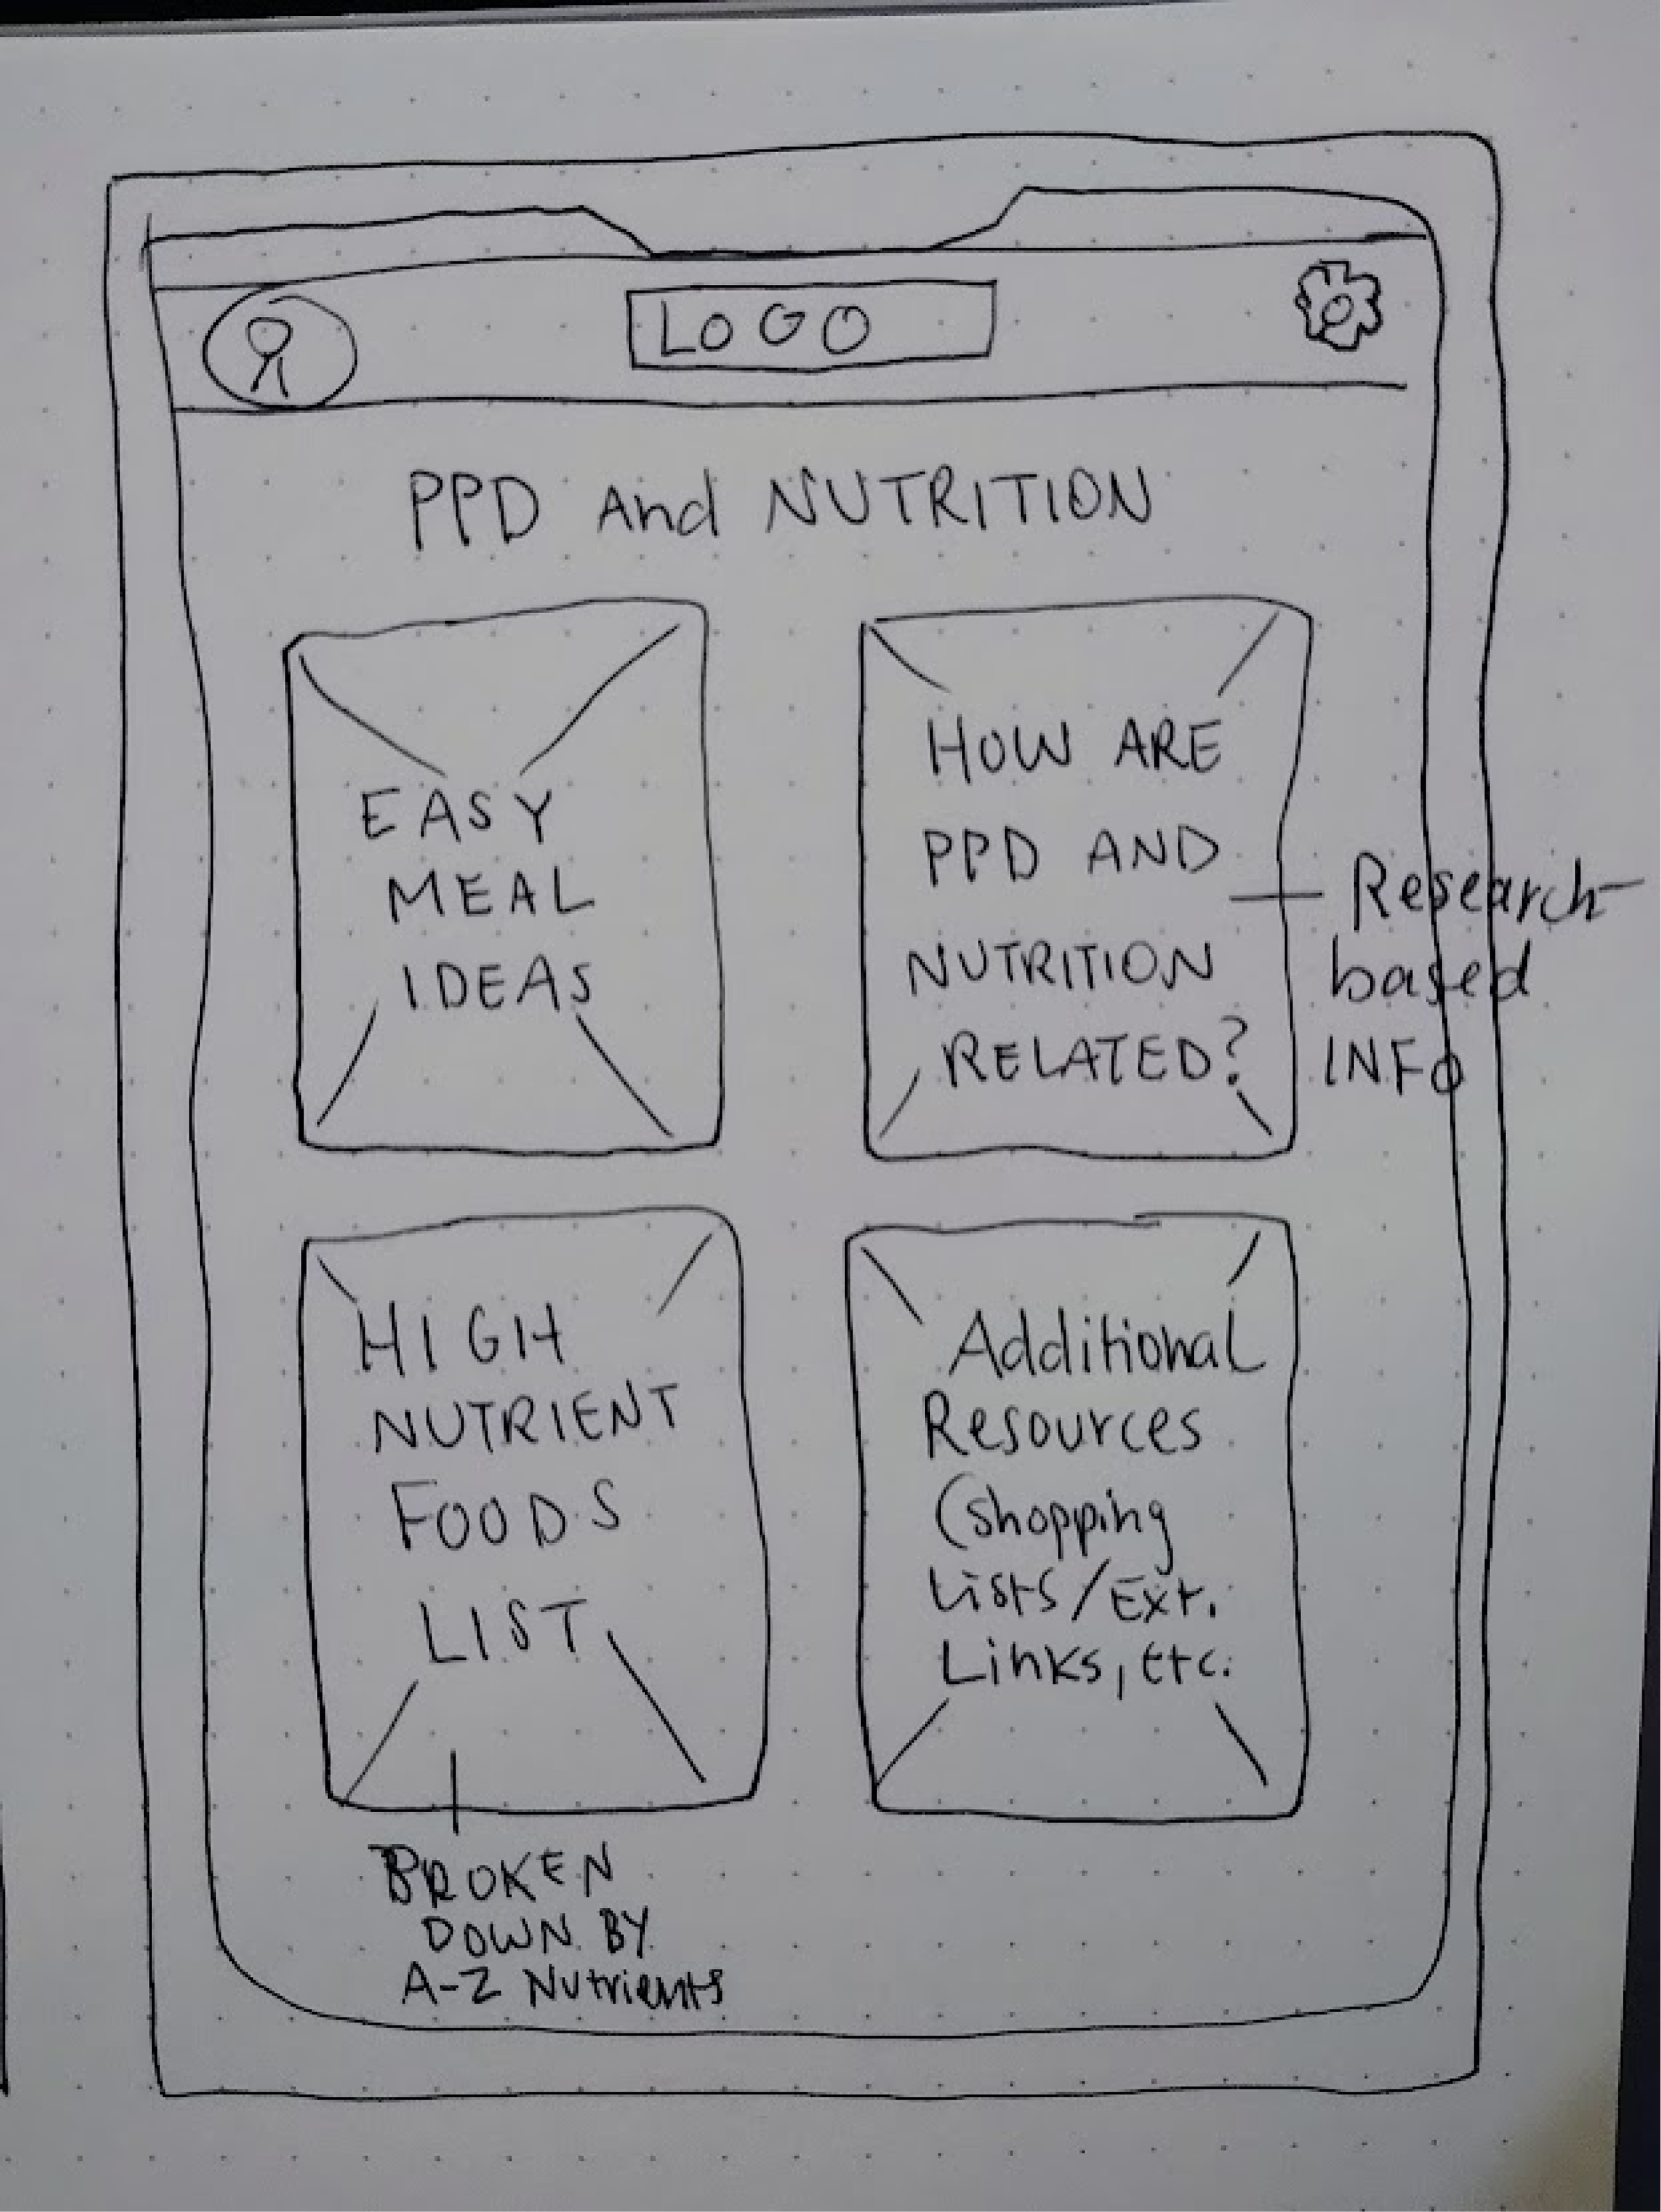 LOGO
PPD And NUTRITION
EASY
MEAL
IDEAS
HOW ARE
PPD AND
NUTRITION
RELATED?
Research-
based
INFO
HIGH
NUTRIENT
FOODS
LIST
BROKEN
DOWN BY
A-Z Nutrients
Additional
Resources
(shopping
Lists/Ext.
Links, Etc.